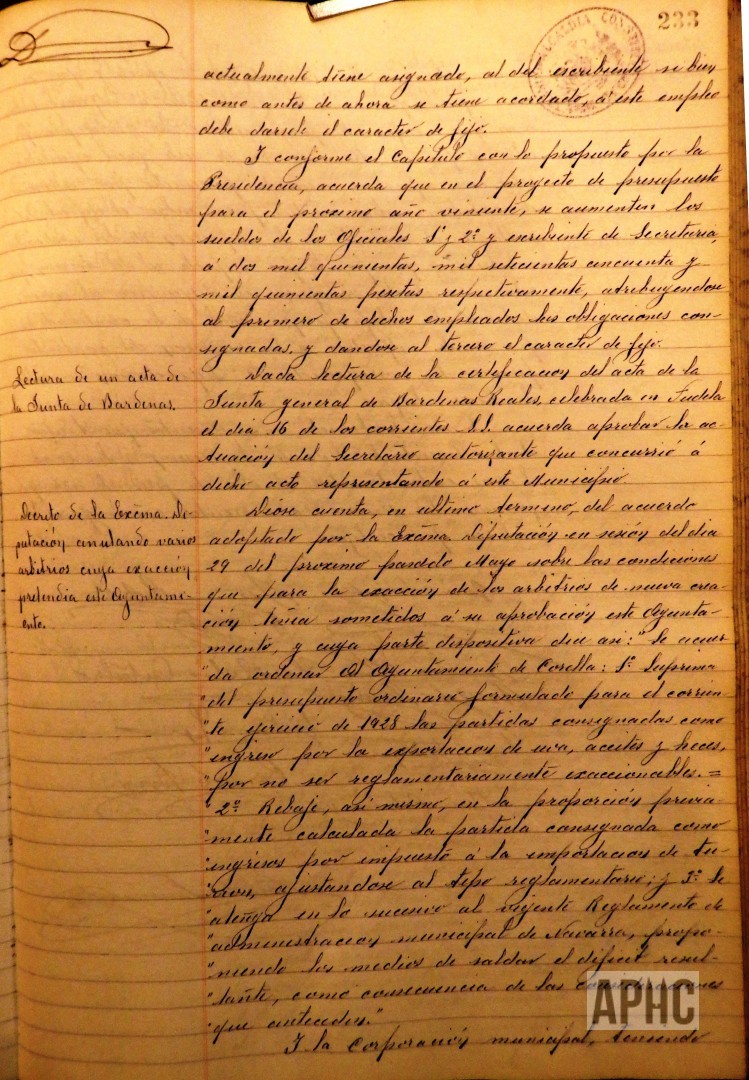 233
actualmente tiene asignado, al del escribiente si bien
como antes de ahora se tiene acordado, á este empleo
debe darsele el caracter de fijo.
I conforme el Capitulo con lo propuesto por la
Presidencia, acuerda que en el proyecto de presupuesto
para el próximo año viniente, se aumenten los
sueldos de los Oficiales 1º y 2º y escribiente de Secretaria,
á dos mil quinientas, mil setecientas cincuenta y
mil quinientas pesetas respectivamente, atribuyendose
al primero de dichos empleados las obligaciones con-
signadas, y dandose al tercero el caracter de fijo.
Lectura de un acta de
la Junta de Bardenas.
Dada lectura de la certificacion del acta de la
Junta general de Bardenas Reales, celebrada en Tudela
el dia 16 de los corrientes S.S. acuerda aprobar la ac-
tuación del Secretario autorizante que concurrió á
dicho acto representando á este Municipio
Decreto de la Excma. Di-
putación anulando varios
arbitrios cuya exacción
pretendia este Ayuntami-
ento.
Dióse cuenta, en ultimo termino, del acuerdo
adoptado por la Excma. Diputación en sesión del dia
29 del proximo pasado Mayo sobre las condiciones
que para la exacción de los arbitrios de nueva crea-
ción tenia sometidos á su aprobación este Ayunta-
miento, y cuya parte dispositiva dice asi: "Se acuer
"da ordenar al Ayuntamiento de Corella: 1º Suprima
"del presupuesto ordinario formulado para el corrien
"te ejercicio de 1928 las partidas consignadas como
"ingreso por la exportacion de uva, aceites y heces,
"por no ser reglamentariamente exaccionables.=
"2º Rebaje, asi mismo, en la proporción previa-
"mente calculada la partida consignada como
"ingresos por impuesto á la importacion de
"ajustandose al tipo reglamentario; y 3º Se
"atenga en lo sucesivo al vigente Reglamento de
"administracion municipal de Navarra, propo-
"niendo los medios de saldar el déficit resul-
"tante, como consecuencia de las consideraciones
"que anteceden."
I la Corporación municipal, teniendo
APHC